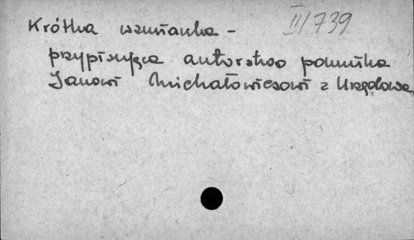 II/739
Krótka wzmianka -
przypisująca autorstwo pomnika
Janowi Michałowiczowi z Urzędowa